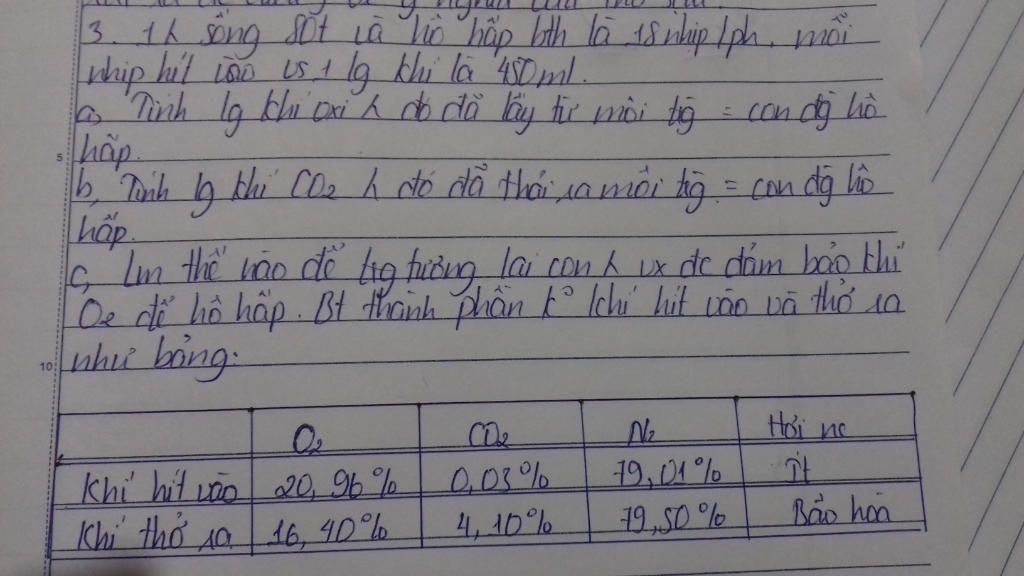 3. 1 λ sống 80t và hô hấp bth là 18 nhịp/ph. mỗi
nhịp hít vào vs 1 lg khí là 450ml.
a, Tính lg khí oxi λ đó đã lấy từ môi tg̃ = con đg̃ hô
hấp.
5
b, Tính lg khí CO2 λ đó đã thải ra môi tg̃ = con đg̃ hô
hấp.
c, Lm thế nào để trg tương lai con λ vx đc đảm bảo khí
O2 để hô hấp. Bt thành phần k° khí hít vào và thở ra
10 như bảng:
O2 CO2 N2 Hơi nc
Khí hít vào 20,96% 0,03% 79,01% Ít
Khí thở ra 16,40% 4,10% 79,50% Bão hòa